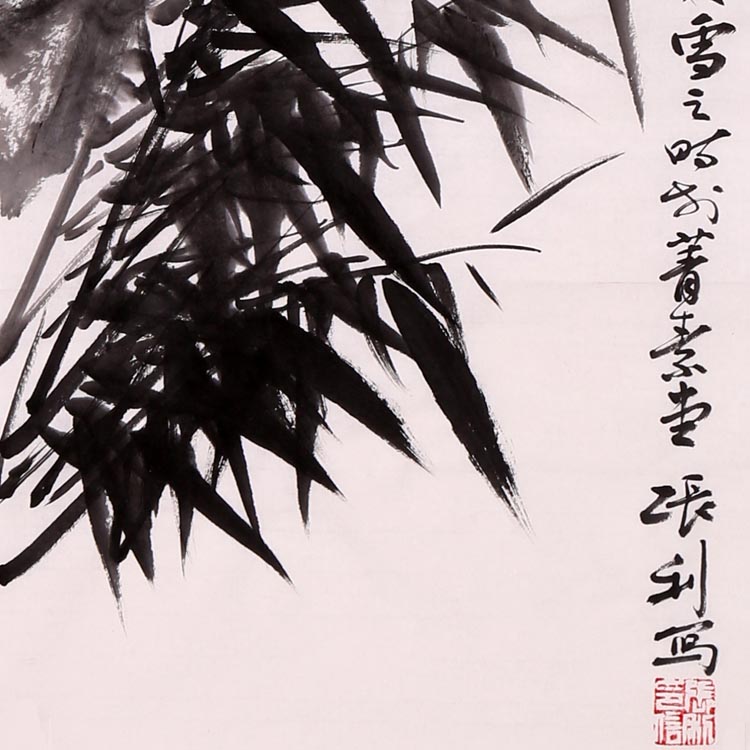 雪之時於菁素堂張利写